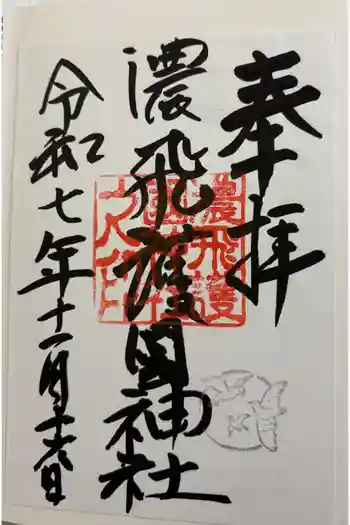 奉拝
濃飛護國神社
濃飛護
國神社
之印
令和七年十一月十六日